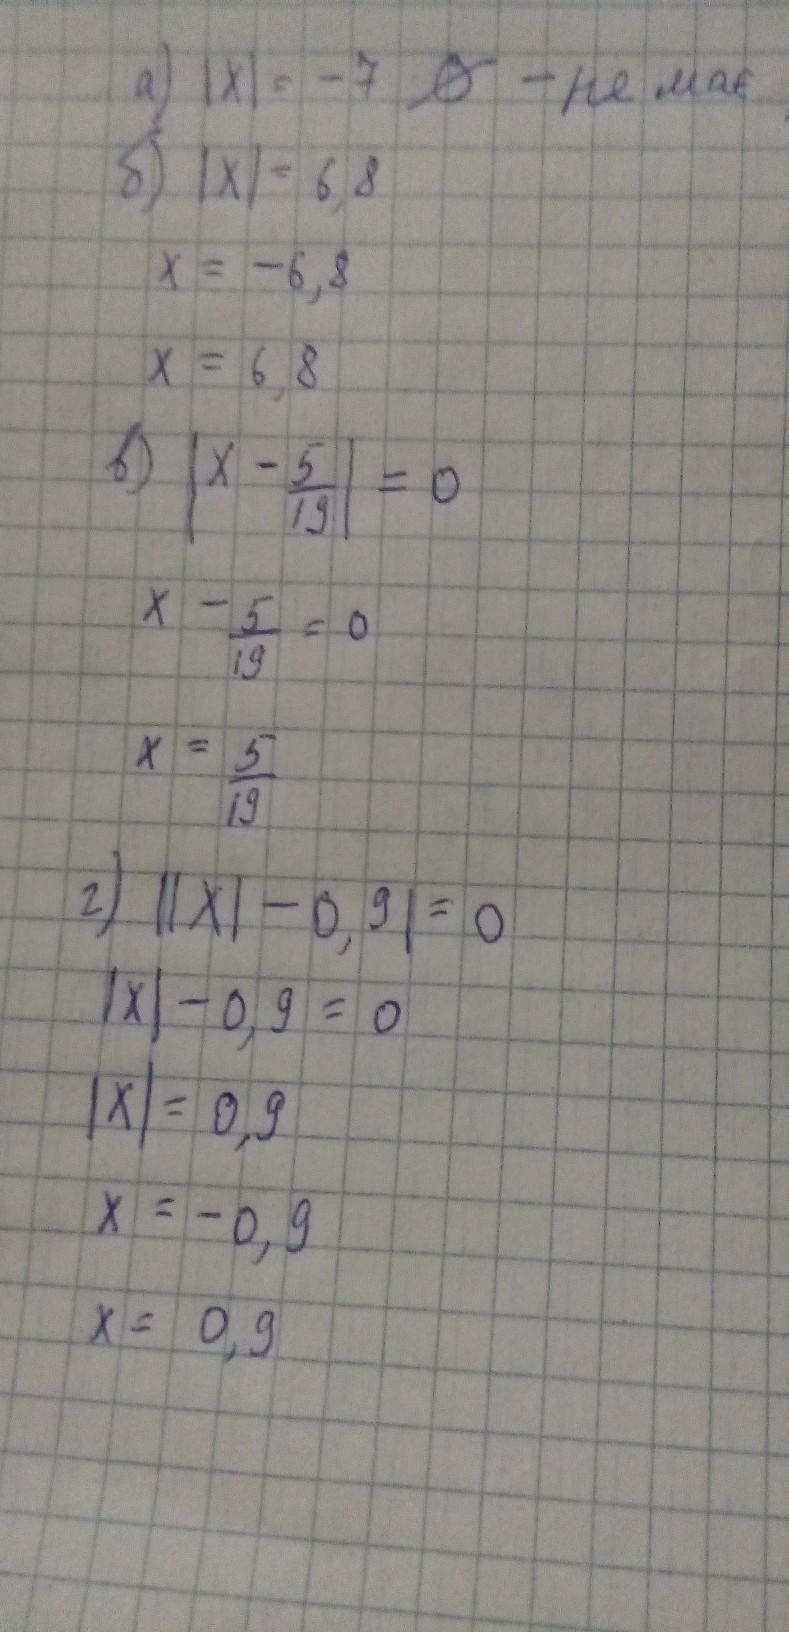 а) |x| = -7 ∅ - не має
б) |x| = 6,8
x = -6,8
x = 6,8
в) |x - 5/19| = 0
x - 5/19 = 0
x = 5/19
г) ||x| - 0,9| = 0
|x| - 0,9 = 0
|x| = 0,9
x = -0,9
x = 0,9